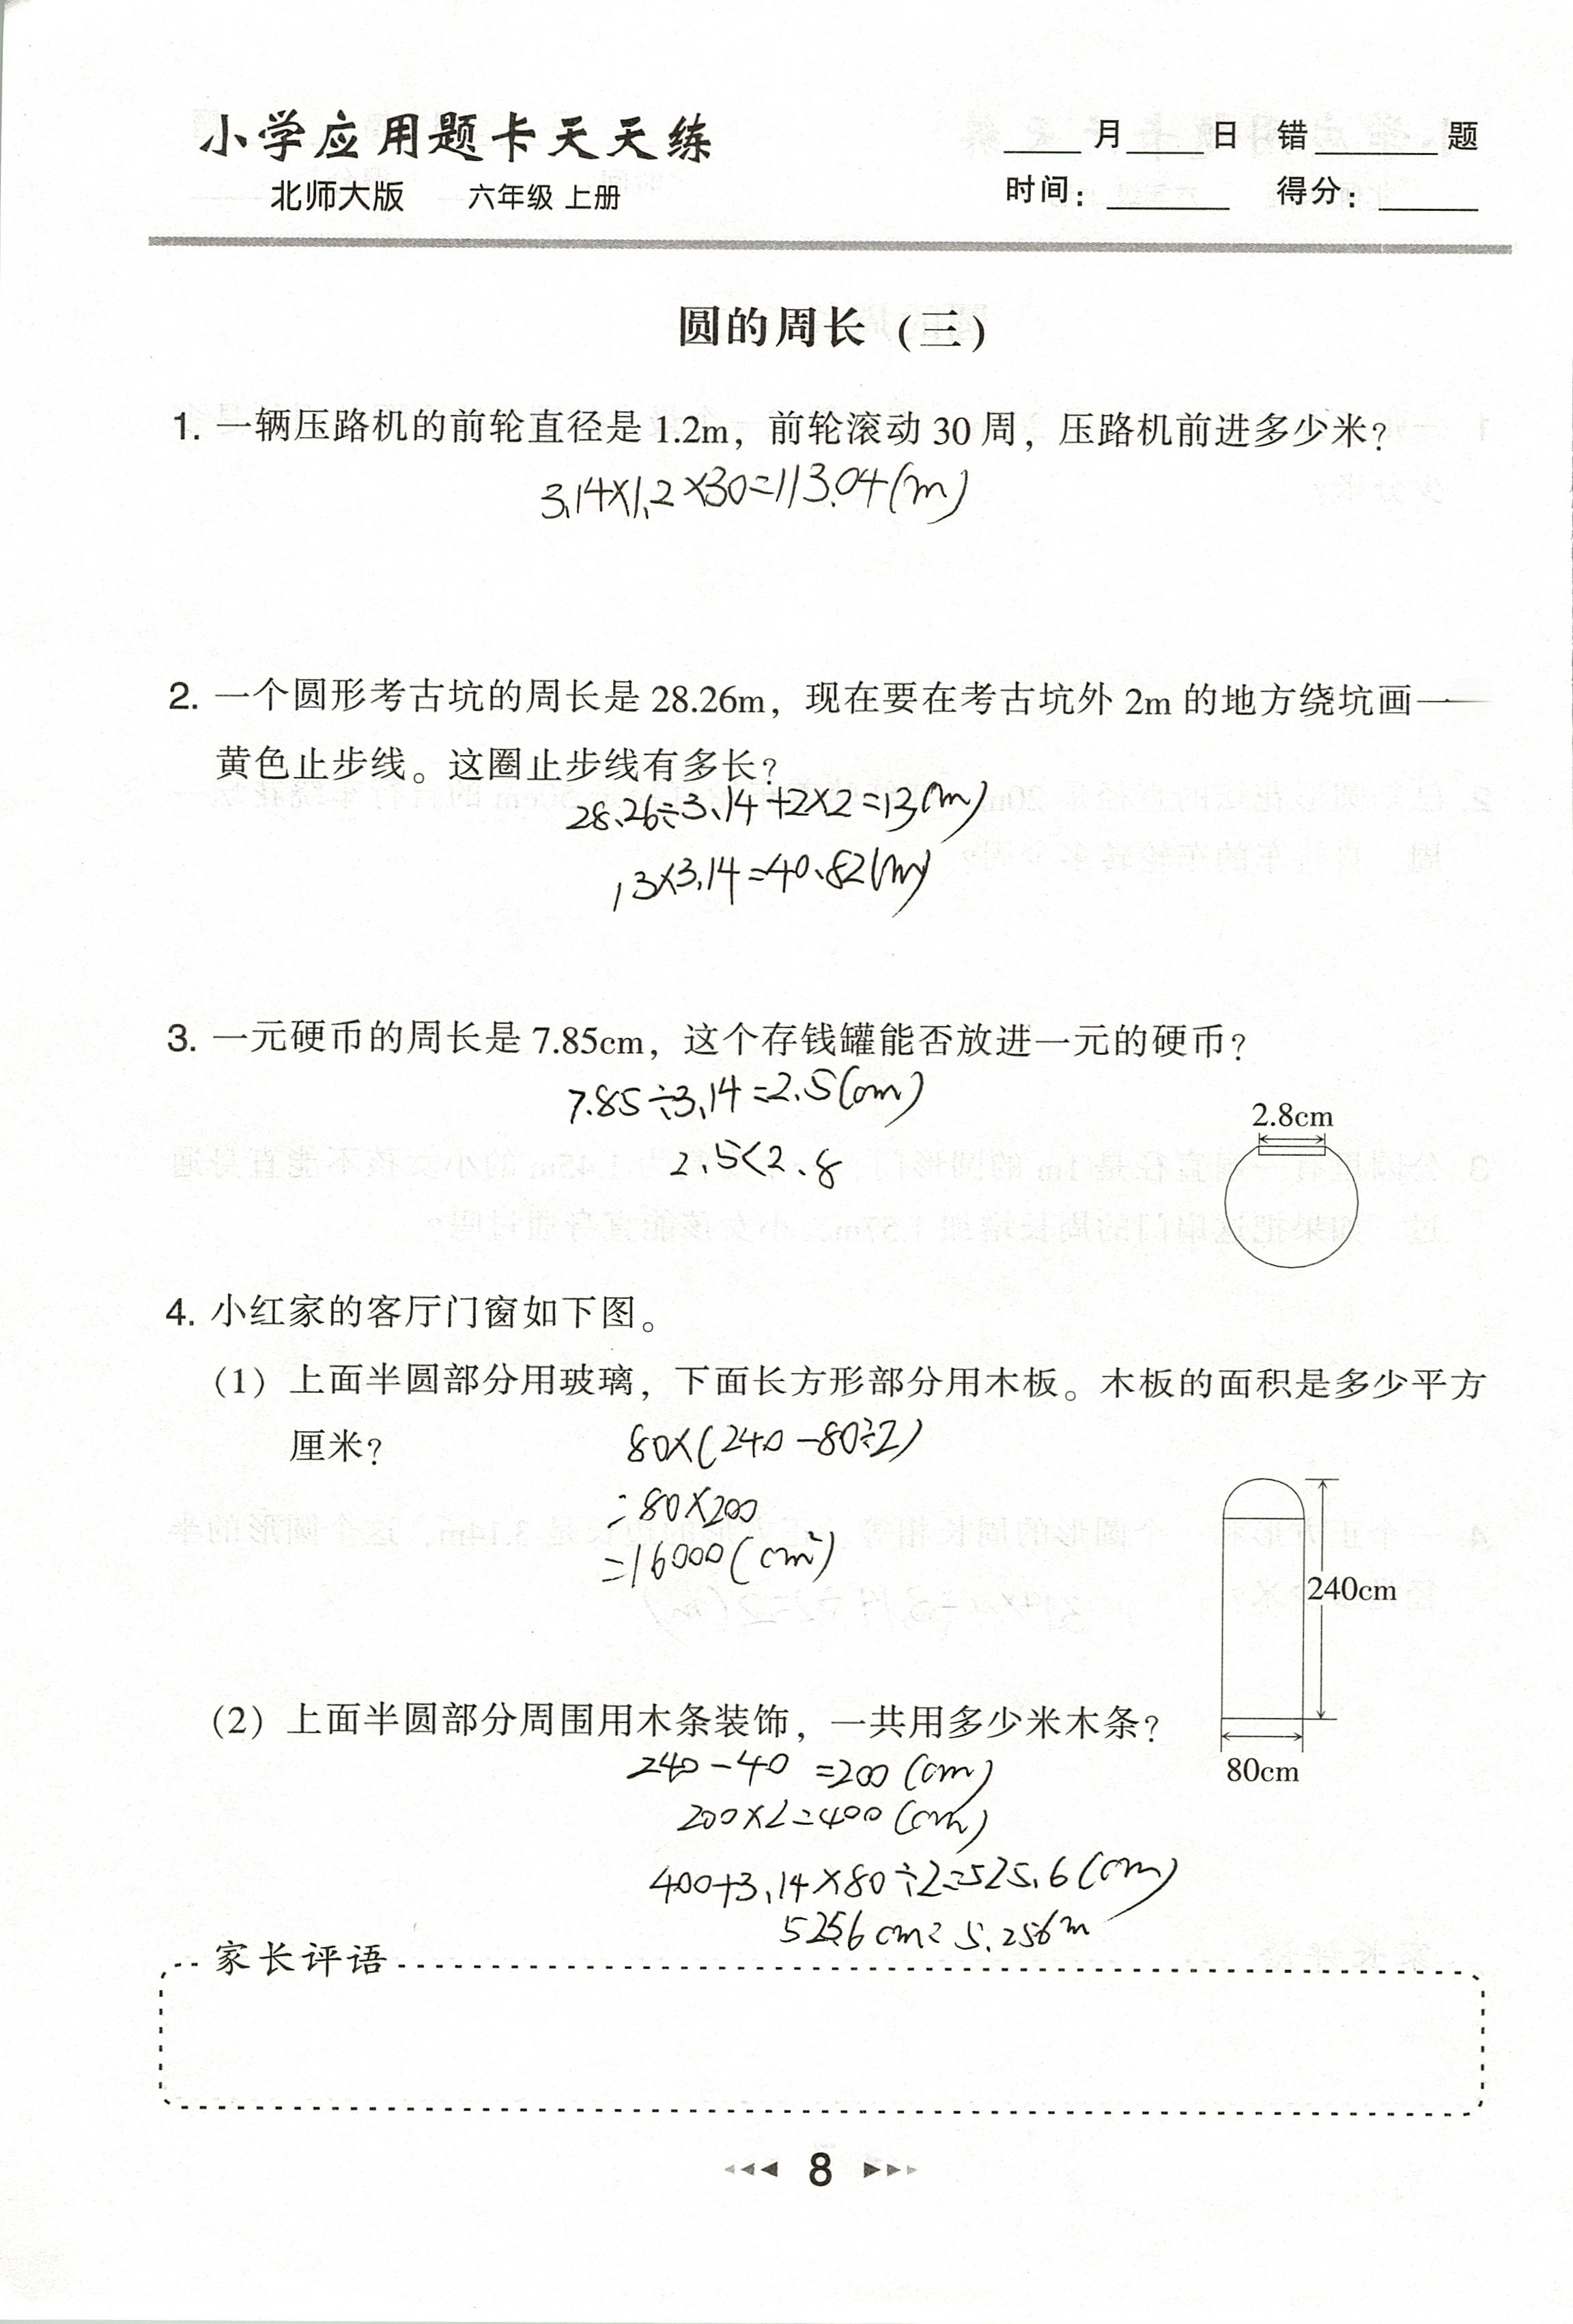 小学应用题卡天天练
____ 月____ 日 错______ 题
北师大版 六年级 上册
时间：______ 得分：_____
圆的周长（三）
1. 一辆压路机的前轮直径是 1.2m，前轮滚动 30 周，压路机前进多少米？
3.14×1.2×30=113.04(m)
2. 一个圆形考古坑的周长是 28.26m，现在要在考古坑外 2m 的地方绕坑画一
黄色止步线。这圈止步线有多长？
28.26÷3.14+2×2=13(m)
13×3.14=40.82(m)
3. 一元硬币的周长是 7.85cm，这个存钱罐能否放进一元的硬币？
7.85÷3.14=2.5(cm)
2.5<2.8
2.8cm
4. 小红家的客厅门窗如下图。
（1）上面半圆部分用玻璃，下面长方形部分用木板。木板的面积是多少平方
厘米？
80×(240-80÷2)
=80×200
=16000(cm²)
240cm
80cm
（2）上面半圆部分周围用木条装饰，一共用多少米木条？
240-40=200(cm)
200×2=400(cm)
400+3.14×80÷2=525.6(cm)
525.6cm=5.256m
家长评语
8